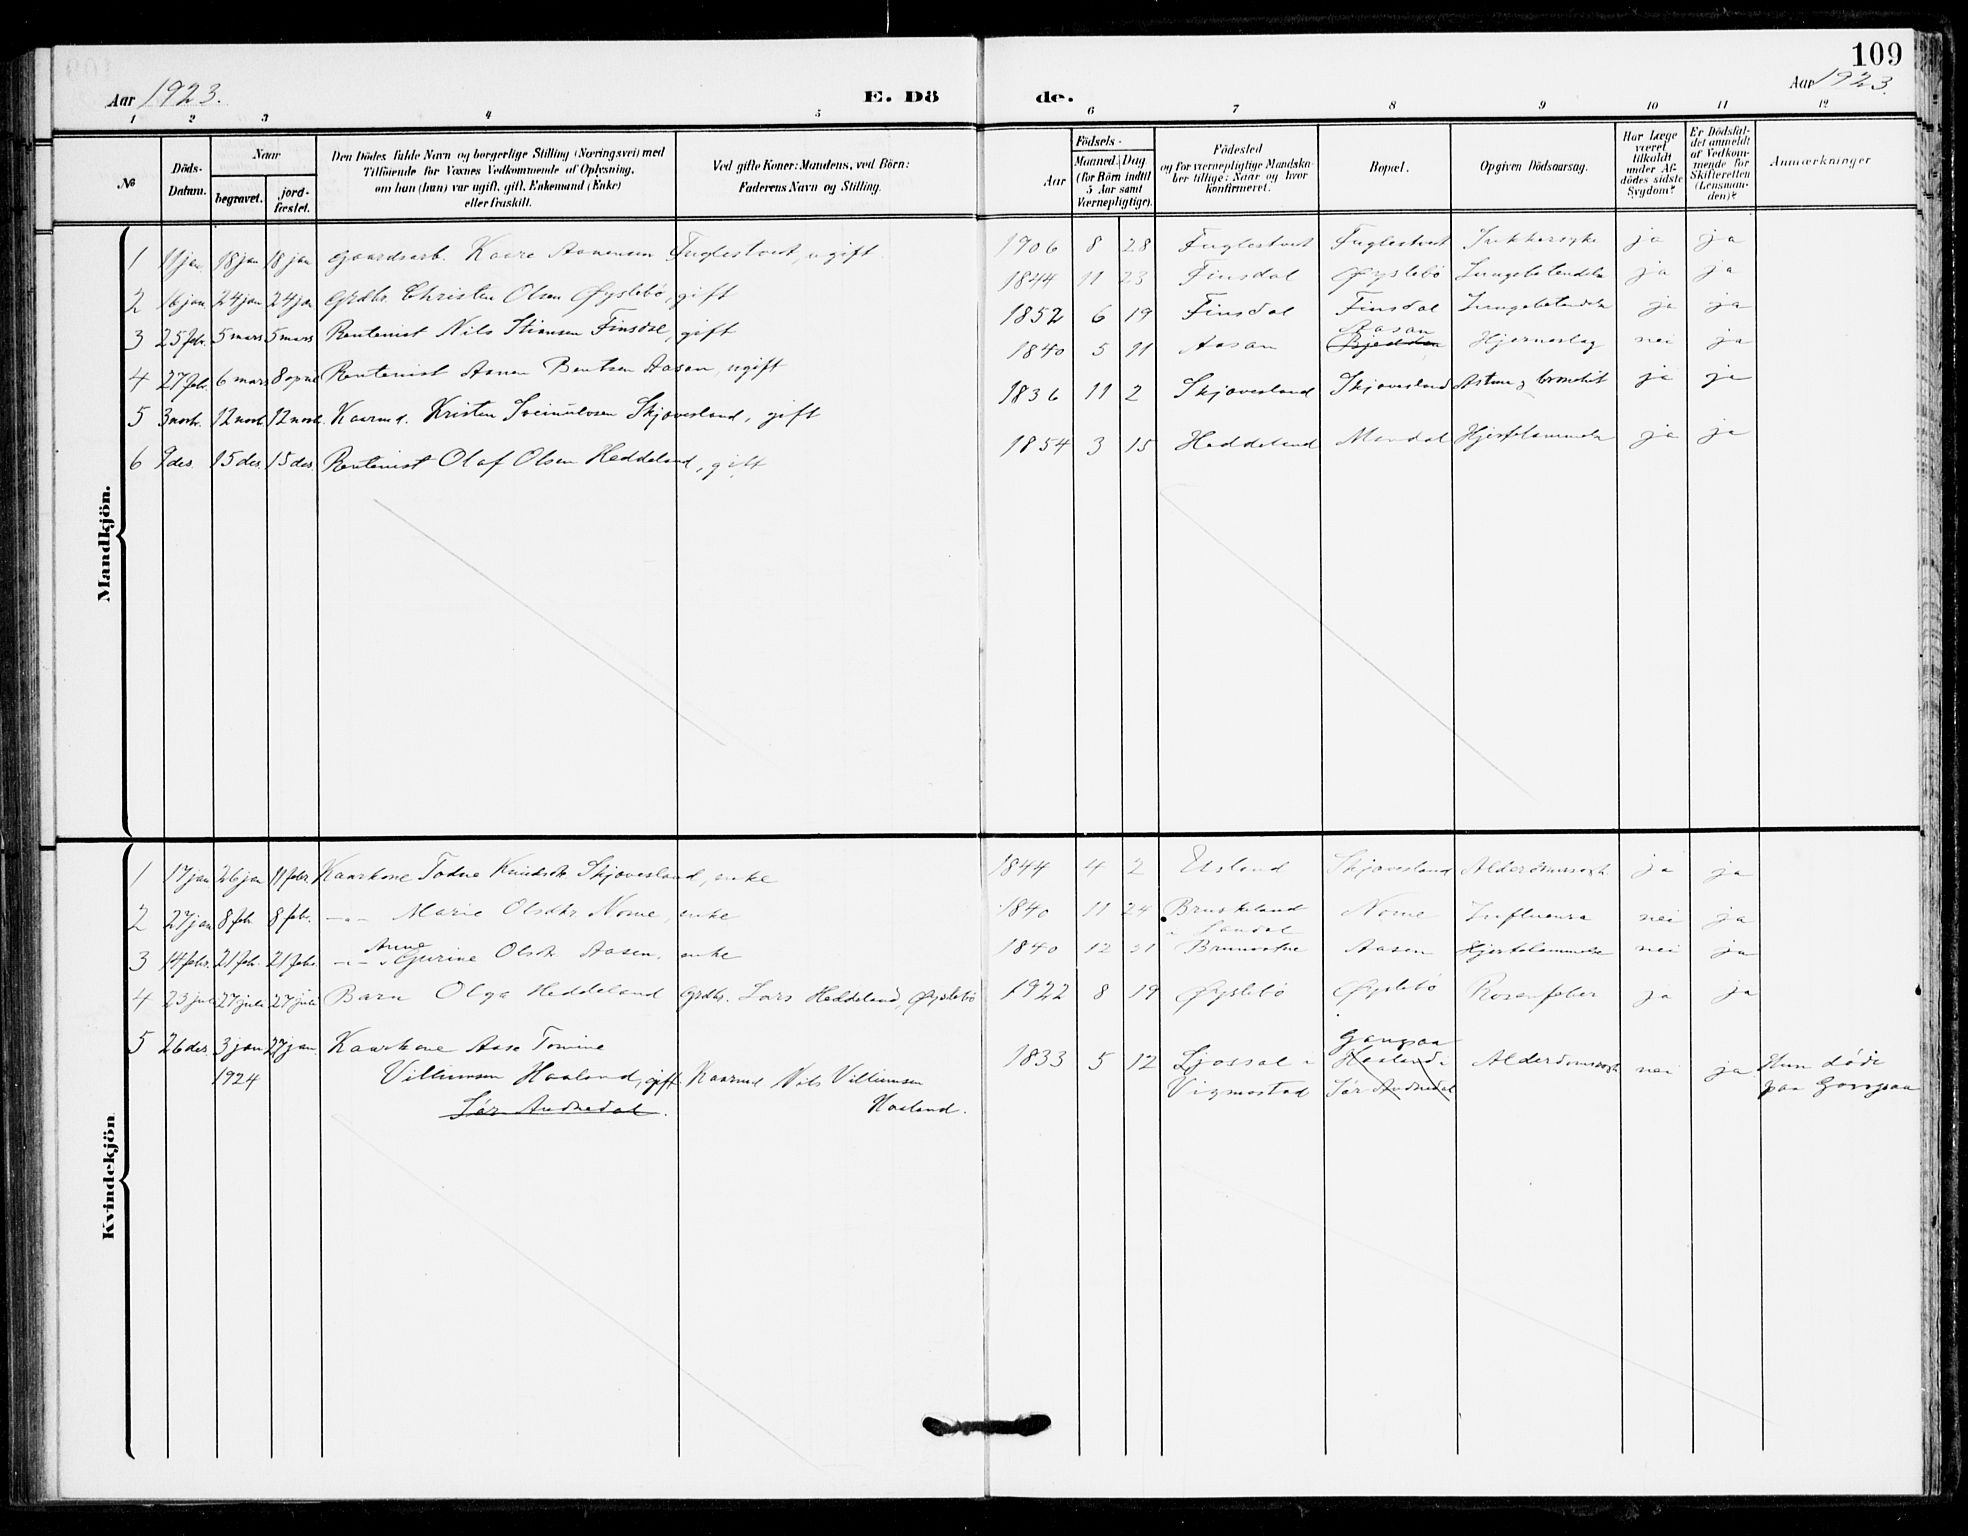 109
Aar 1923. E. Dö de. Aar 1923.
1 2 3 4 5 6 7 8 9 10 11 12
№
Döds-Datum.
Naar
begravet.
jord-fæstet.
Den Dödes fulde Navn og borgerlige Stilling (Næringsvei) med
Tilföiende for Voxnes Vedkommende af Oplysning,
om hun (han) var ugift, gift, Enkemand (Enke)
eller fraskilt.
Ved gifte Koner: Mandens, ved Börn:
Faderens Navn og Stilling.
Födsels-
Aar
Maaned. Dag
(for Börn indtil
5 Aar samt
Værnepligtige).
Födested
og for værnepligtige Mandska-
ber tillige: Naar og hvor
konfirmeret.
Bopæl.
Opgiven Dödsaarsag.
Har Læge
været
tilkaldt
under Af-
dödes sidste
Sygdom?
Er Dödsfal-
det anmeldt
af Vedkom-
mende for
Skifteretten
(Lensman-
den)?
Anmærkninger
Mandkjön.
1 11 jan 18 jan 18 jan gaardsarb. Kaare Aanensen Fuglestvedt, ugift 1906 8 28 Fuglestvedt Fuglestvedt Sukkersyke ja ja
2 16 jan 24 jan 24 jan Grdbr. Christen Olsen Øyslebø, gift 1844 11 23 Finsdal Øyslebø Lungebetendelse ja ja
3 25 febr. 5 mars 5 mars Rentenist Nils Stiansen Finsdal, gift 1852 6 19 Finsdal Finsdal Lungebetendelse ja ja
4 27 febr. 6 mars 8 april Rentenist Asmen Bentsen Aasan, ugift 1840 5 11 Aasan Aasan Hjerneslag nei ja
5 3 novb. 12 novb. 12 novb. Kaarmd. Kristen Sveinulvsen Skjævesland, gift 1836 11 2 Skjævesland Skjævesland Astma og bronchit ja ja
6 9 des. 15 des. 15 des. Rentenist Olaf Olsen Heddeland, gift 1854 3 15 Heddeland Mandal Hjertelammelse ja ja
Kvindekjön
1 17 jan 26 jan 11 febr. Kaarkone Todne Knudsdtr Skjævesland, enke 1844 4 2 Usland Skjævesland Alderdomssvakh ja ja
2 27 jan 8 feb. 8 febr. -"- Marie Olsdtr Nome, enke 1840 11 24 Bruskeland i Søndal Nome Influensa nei ja
3 14 febr. 21 feb. 21 febr. -"- Anne Gurine Olsdtr Aasen, enke 1840 12 21 Aasen Hjertelammelse nei ja
4 23 juli 27 juli 27 juli Barn Olga Heddeland Grdbr. Lars Heddeland, Øyslebø 1922 8 19 Øyslebø Øyslebø Rosenfeber ja ja
5 26 des. 3 jan 27 jan. Kaarkone Aase Tomine Gangsaa
1924 Villumsen Haaland, gift Kaarmd Nils Villumsen 1833 5 12 Ljossal i Haaland i Alderdomssvakh nei ja Hun døde
Sør Audnedal. Haaland. Vigmostad Sør Audnedal paa Gangsaa